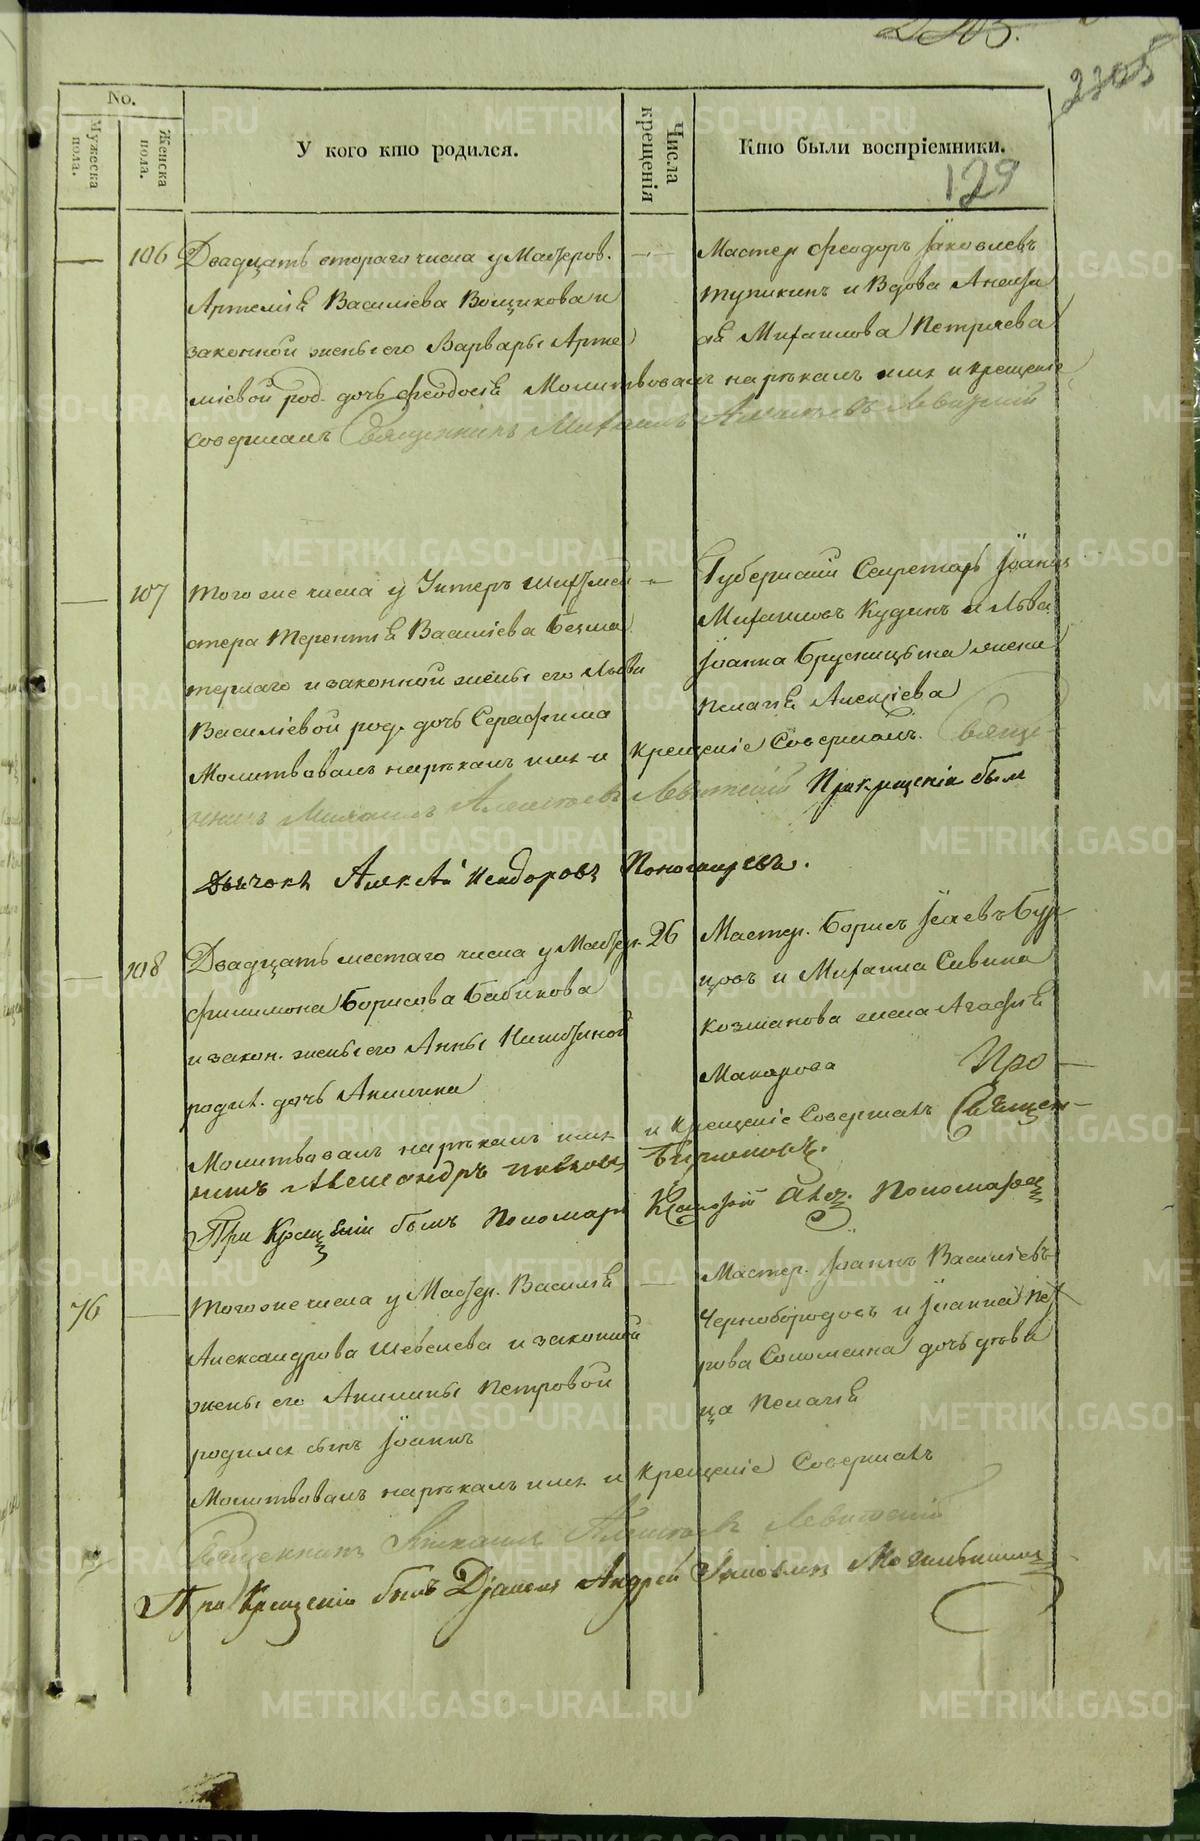 2205
129
No.
Мужеска пола.
Женска пола.
У кого кто родился.
Числа крещенія
Кто были воспріемники.
106 Двадцать втораго числа у Мастеров.
Артемія Василіева Вощикова и
законной жены его Варвары Арте
міевой род. дочь Феодосія Молитвовалъ нарѣкалъ имя и крещеніе
совершалъ Священникъ Михаилъ Алексѣевъ Левитскій
Мастер Феодоръ Іаковлевъ
тупикинъ и Вдова
Михаилова Петряева
107 Того же числа у Унтеръ Шихтмей
стера Терентія Василіева Безма
тернаго и законной жены его
Василіевой род. дочь Серафима
Молитвовалъ нарѣкалъ имя и крещеніе Совершалъ. Свяще
нникъ Михаилъ Алексѣевъ Левитскій При крещеніи былъ
Дьячокъ Алексѣй Пономаревъ.
Губернскій Секретарь Іоаннъ
Михаиловъ Кудинъ и Льва
Іоанна Брусницына жена
Пелагія Алексіева
108 Двадцать шестаго числа у Мастер. 26
Филимона Борисова Бабикова
и закон. жены его Анны Никитиной
родил. дочь Акилина
Молитвовалъ нарѣкалъ имя и крещеніе Совершалъ Священ
никъ Александръ
При Крещеніи былъ Пономарь Пономарев
Мастер. Борисъ Бур
цовъ и Михаила Савина
Козманова жена Агафія
Макарова Про
76 Того же числа у Мастер. Василія
Александрова Шевелева и законной
жены его Акилины Петровой
родился сынъ Іоаннъ
Молитвовалъ нарѣкалъ имя и крещеніе Совершалъ
Священникъ Михаилъ Алексѣевъ Левитскій
При Крещеніи былъ Діаконъ Андрей Яковлев
Мастер. Іоаннъ Василіевъ
Чернобородовъ и Іоанна Пет
рова Соломеина дочь дѣви
ца Пелагія
METRIKI.GASO-URAL.RU